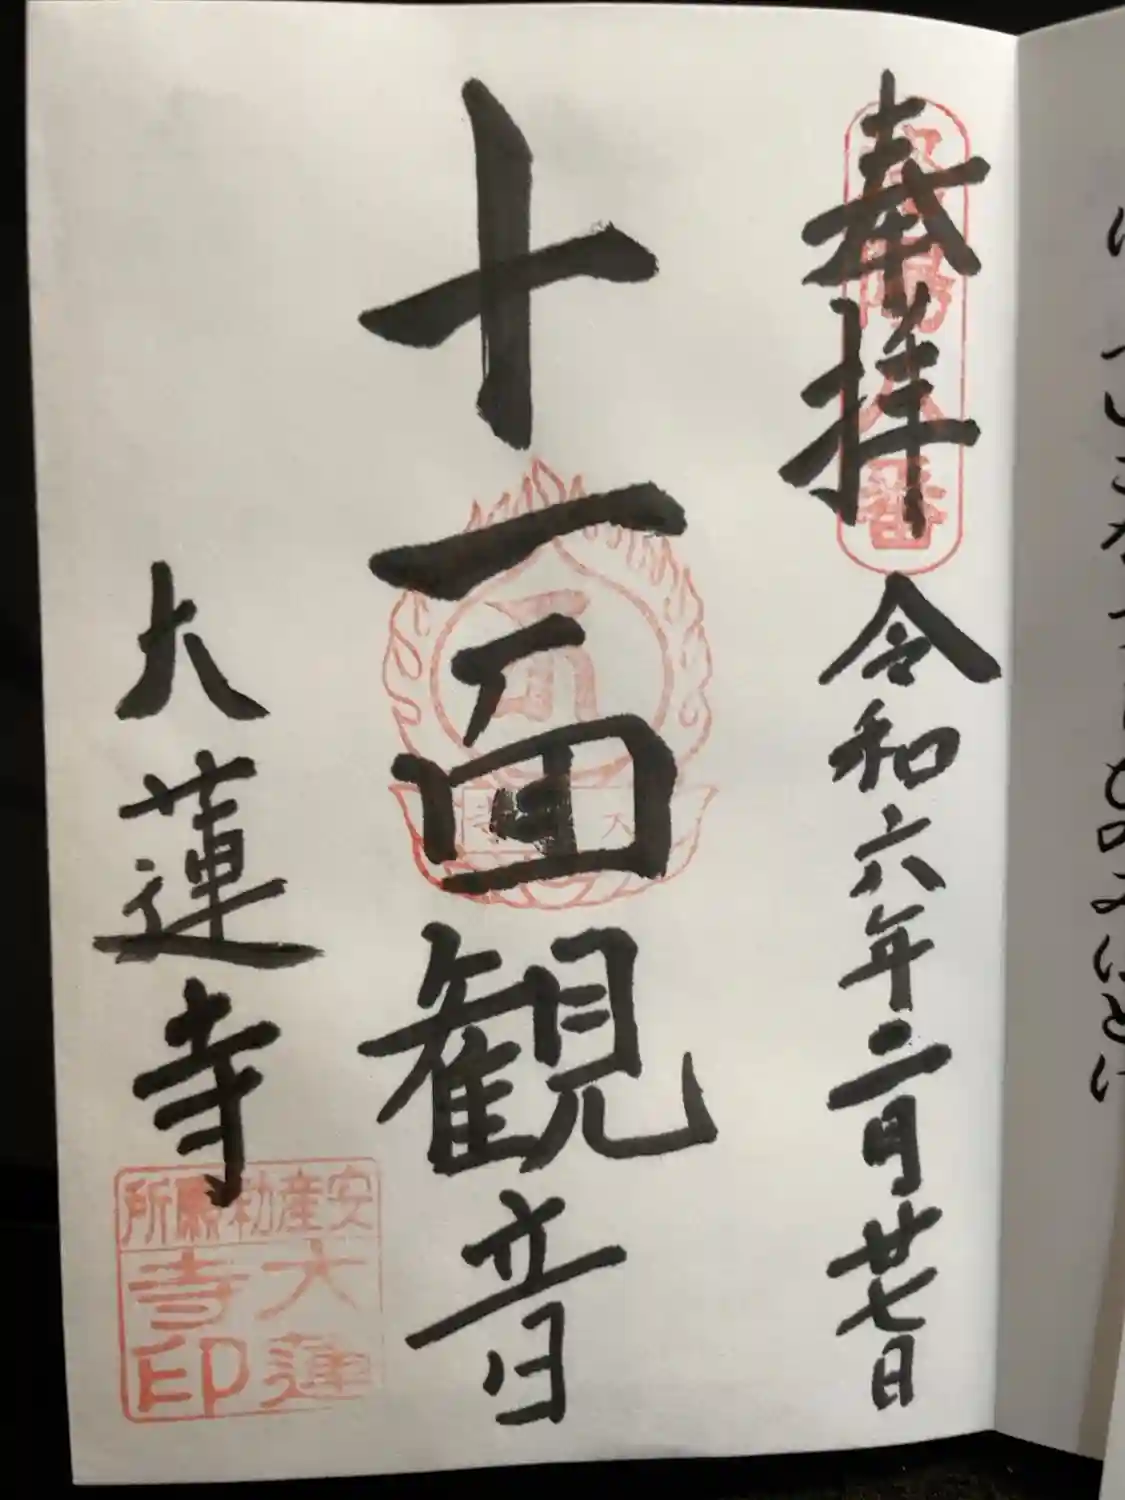 奉拝 令和六年二月廿七日
十一面観音
大蓮寺
洛陽八番
安産勅願所
大蓮
寺印